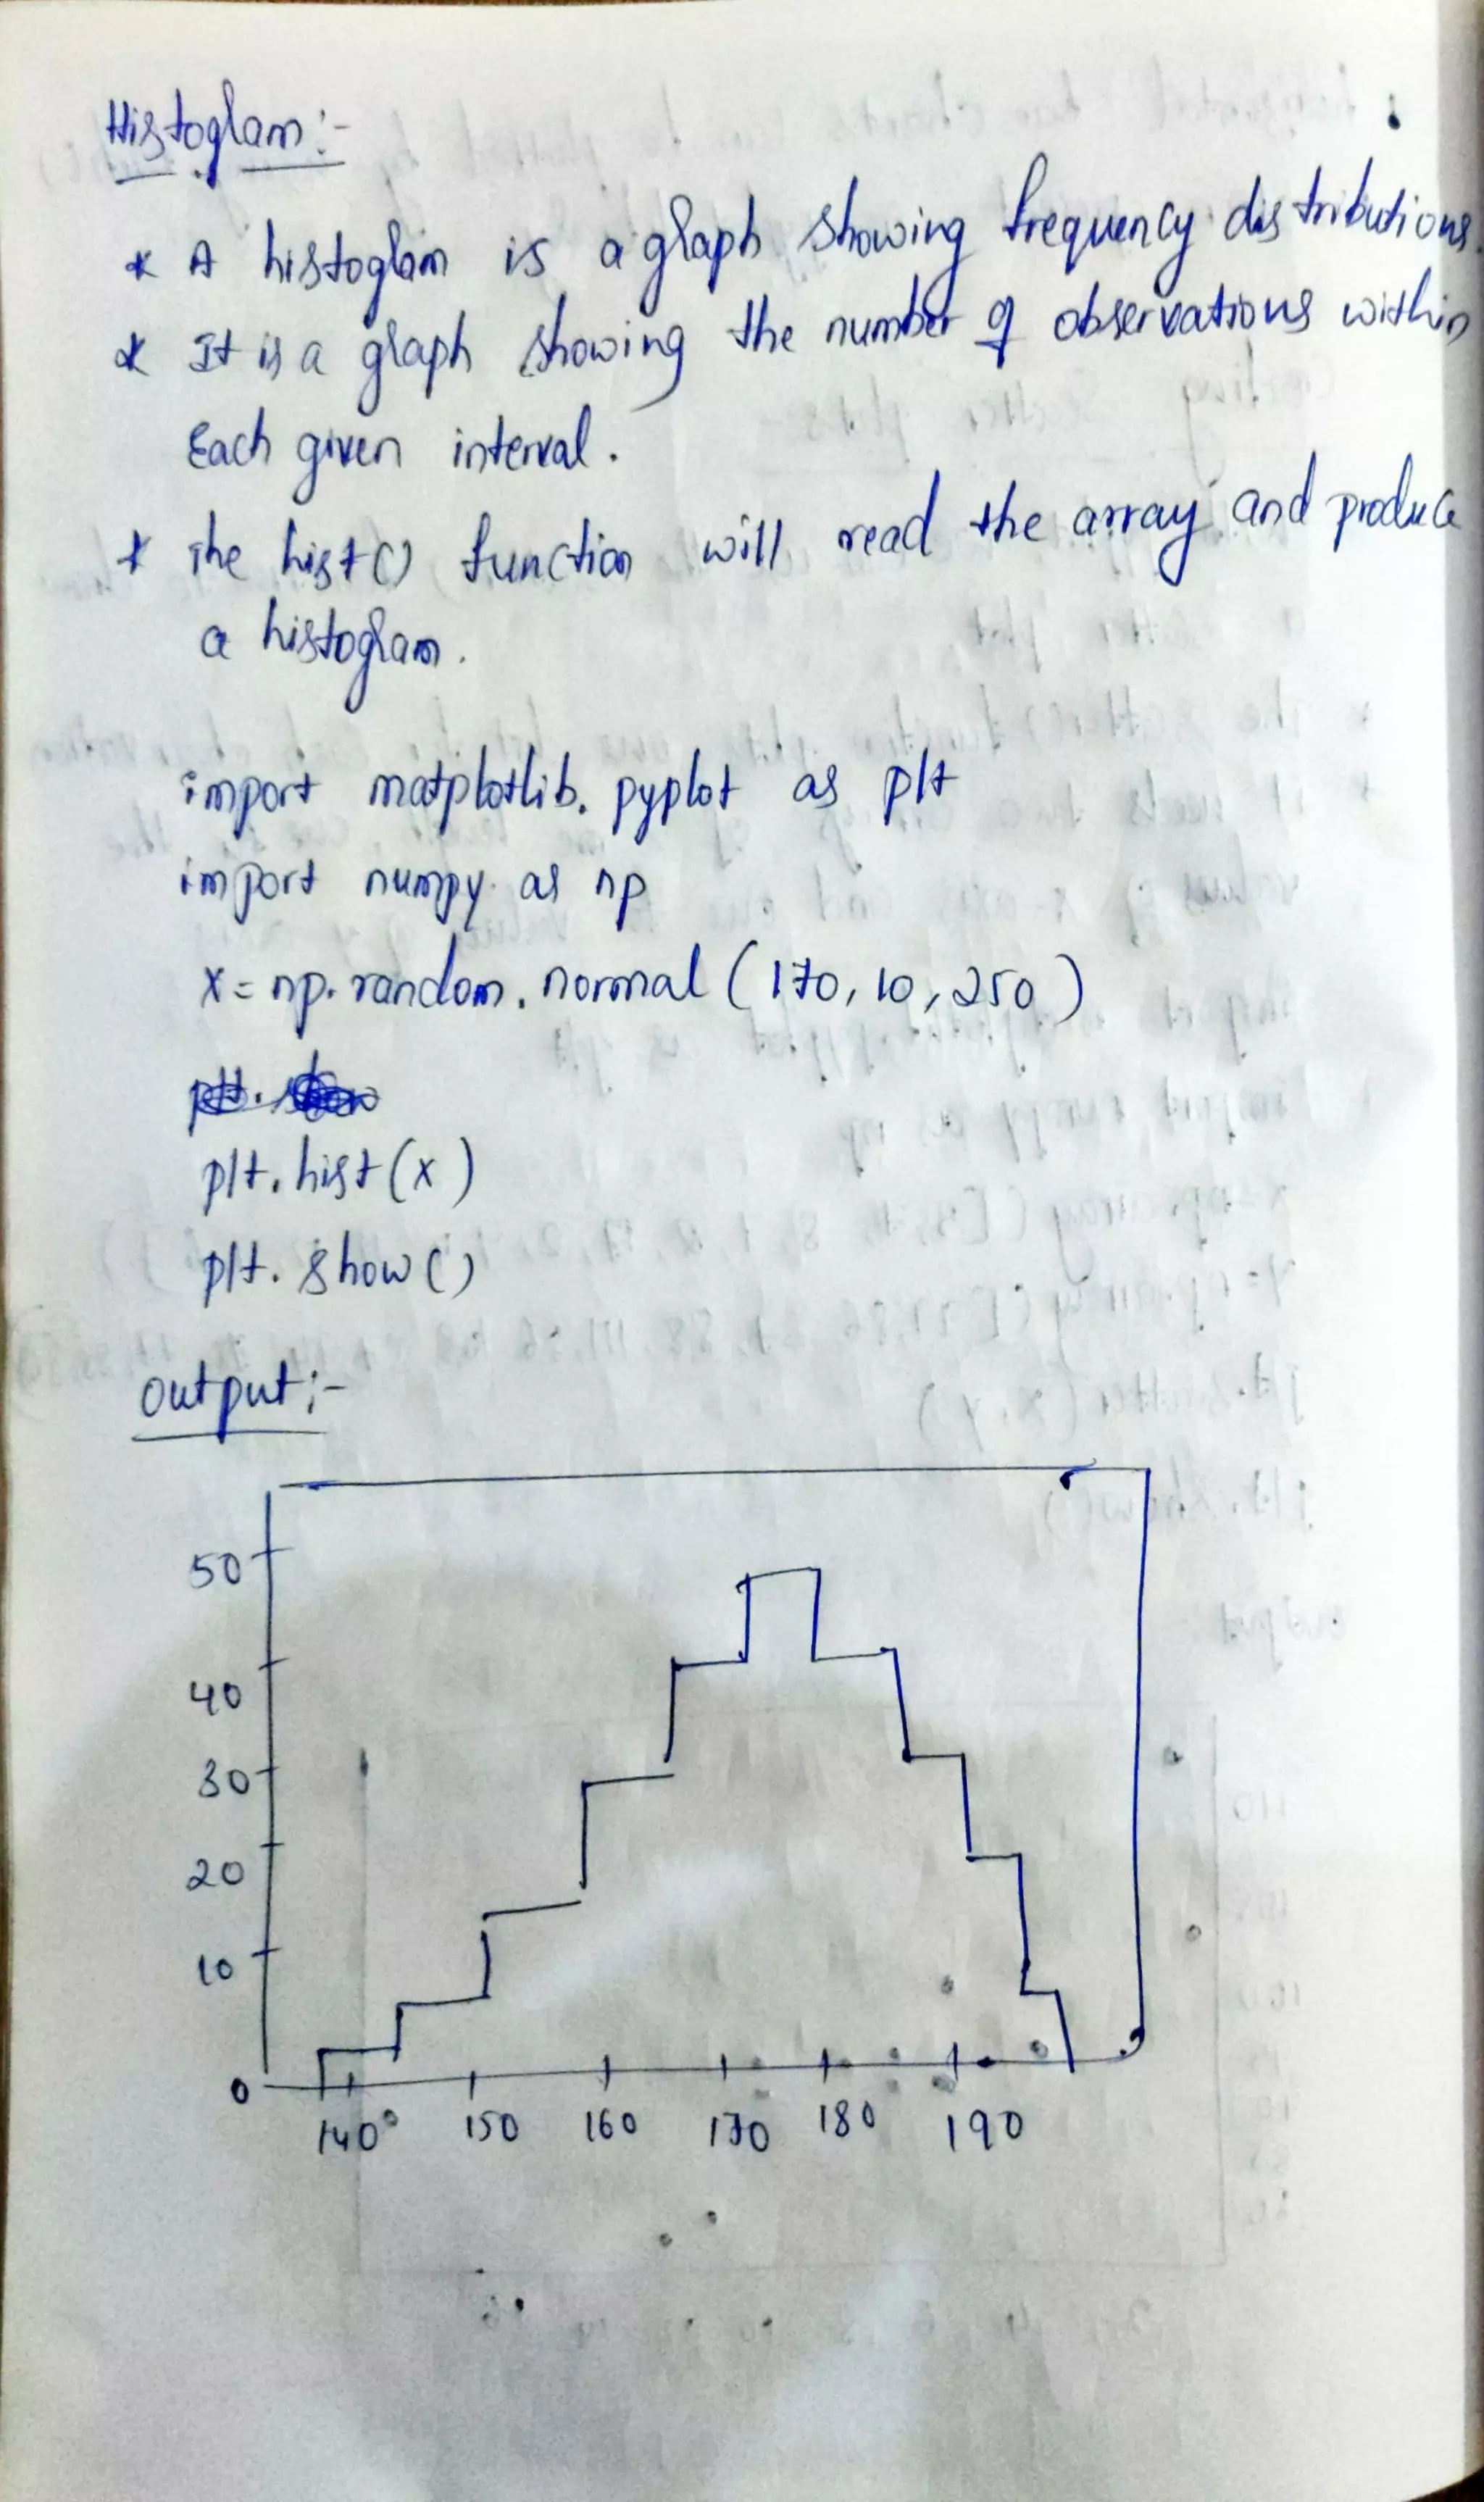 Histogram:-
* A histogram is a graph showing frequency distributions.
* It is a graph showing the number of observations within
Each given interval.
* The hist() function will read the array and produce
a histogram.
import matplotlib.pyplot as plt
import numpy as np
x = np.random.normal (170, 10, 250)
plt.hist(x)
plt.show()
output:-
50
40
30
20
10
0
140 150 160 170 180 190